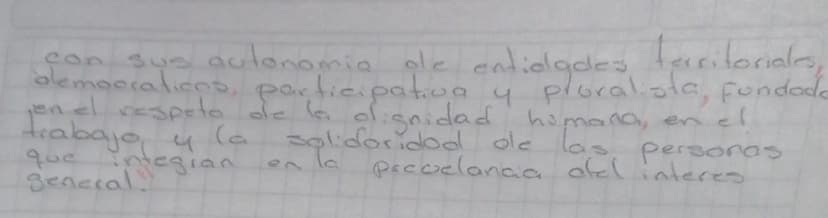 con sus autonomia de entidades territoriales,
democraticos, participativa y pluralista, Fundada
en el respeto de la dignidad humana, en el
trabajo, y la solidaridad de las personas
que integran en la precedancia del interes
general.